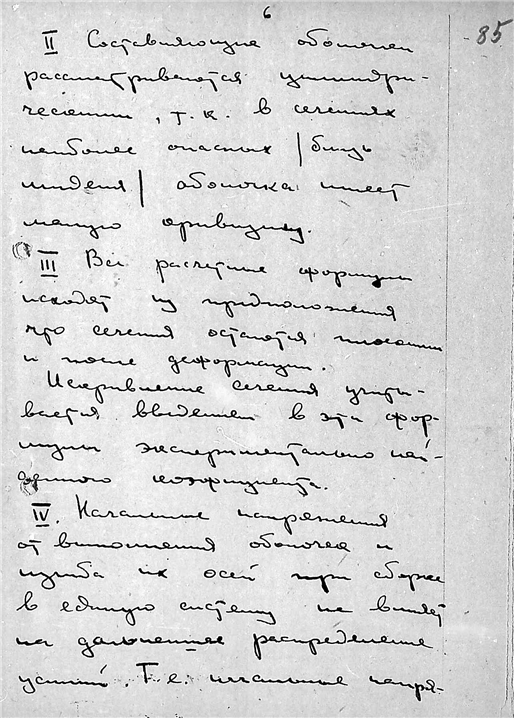 6
85
II Составляющие оболочек
рассматриваются цилиндри-
ческими, т.к. в сечениях
наиболее опасных /близь
миделя/ оболочка имеет
малую кривизну.
III Все расчетные формулы
исходят из предположения
что сечения остаются плоскими
и после деформации.
Искривление сечения учиты-
вается введением в эти фор-
мулы экспериментально най-
денного коэффициента.
IV. Начальные напряжения
от выполнения оболочек и
изгиба их осей при сборке
в единую систему не влияет
на дальнейшее распределение
усилий. Т.е. начальные напря-